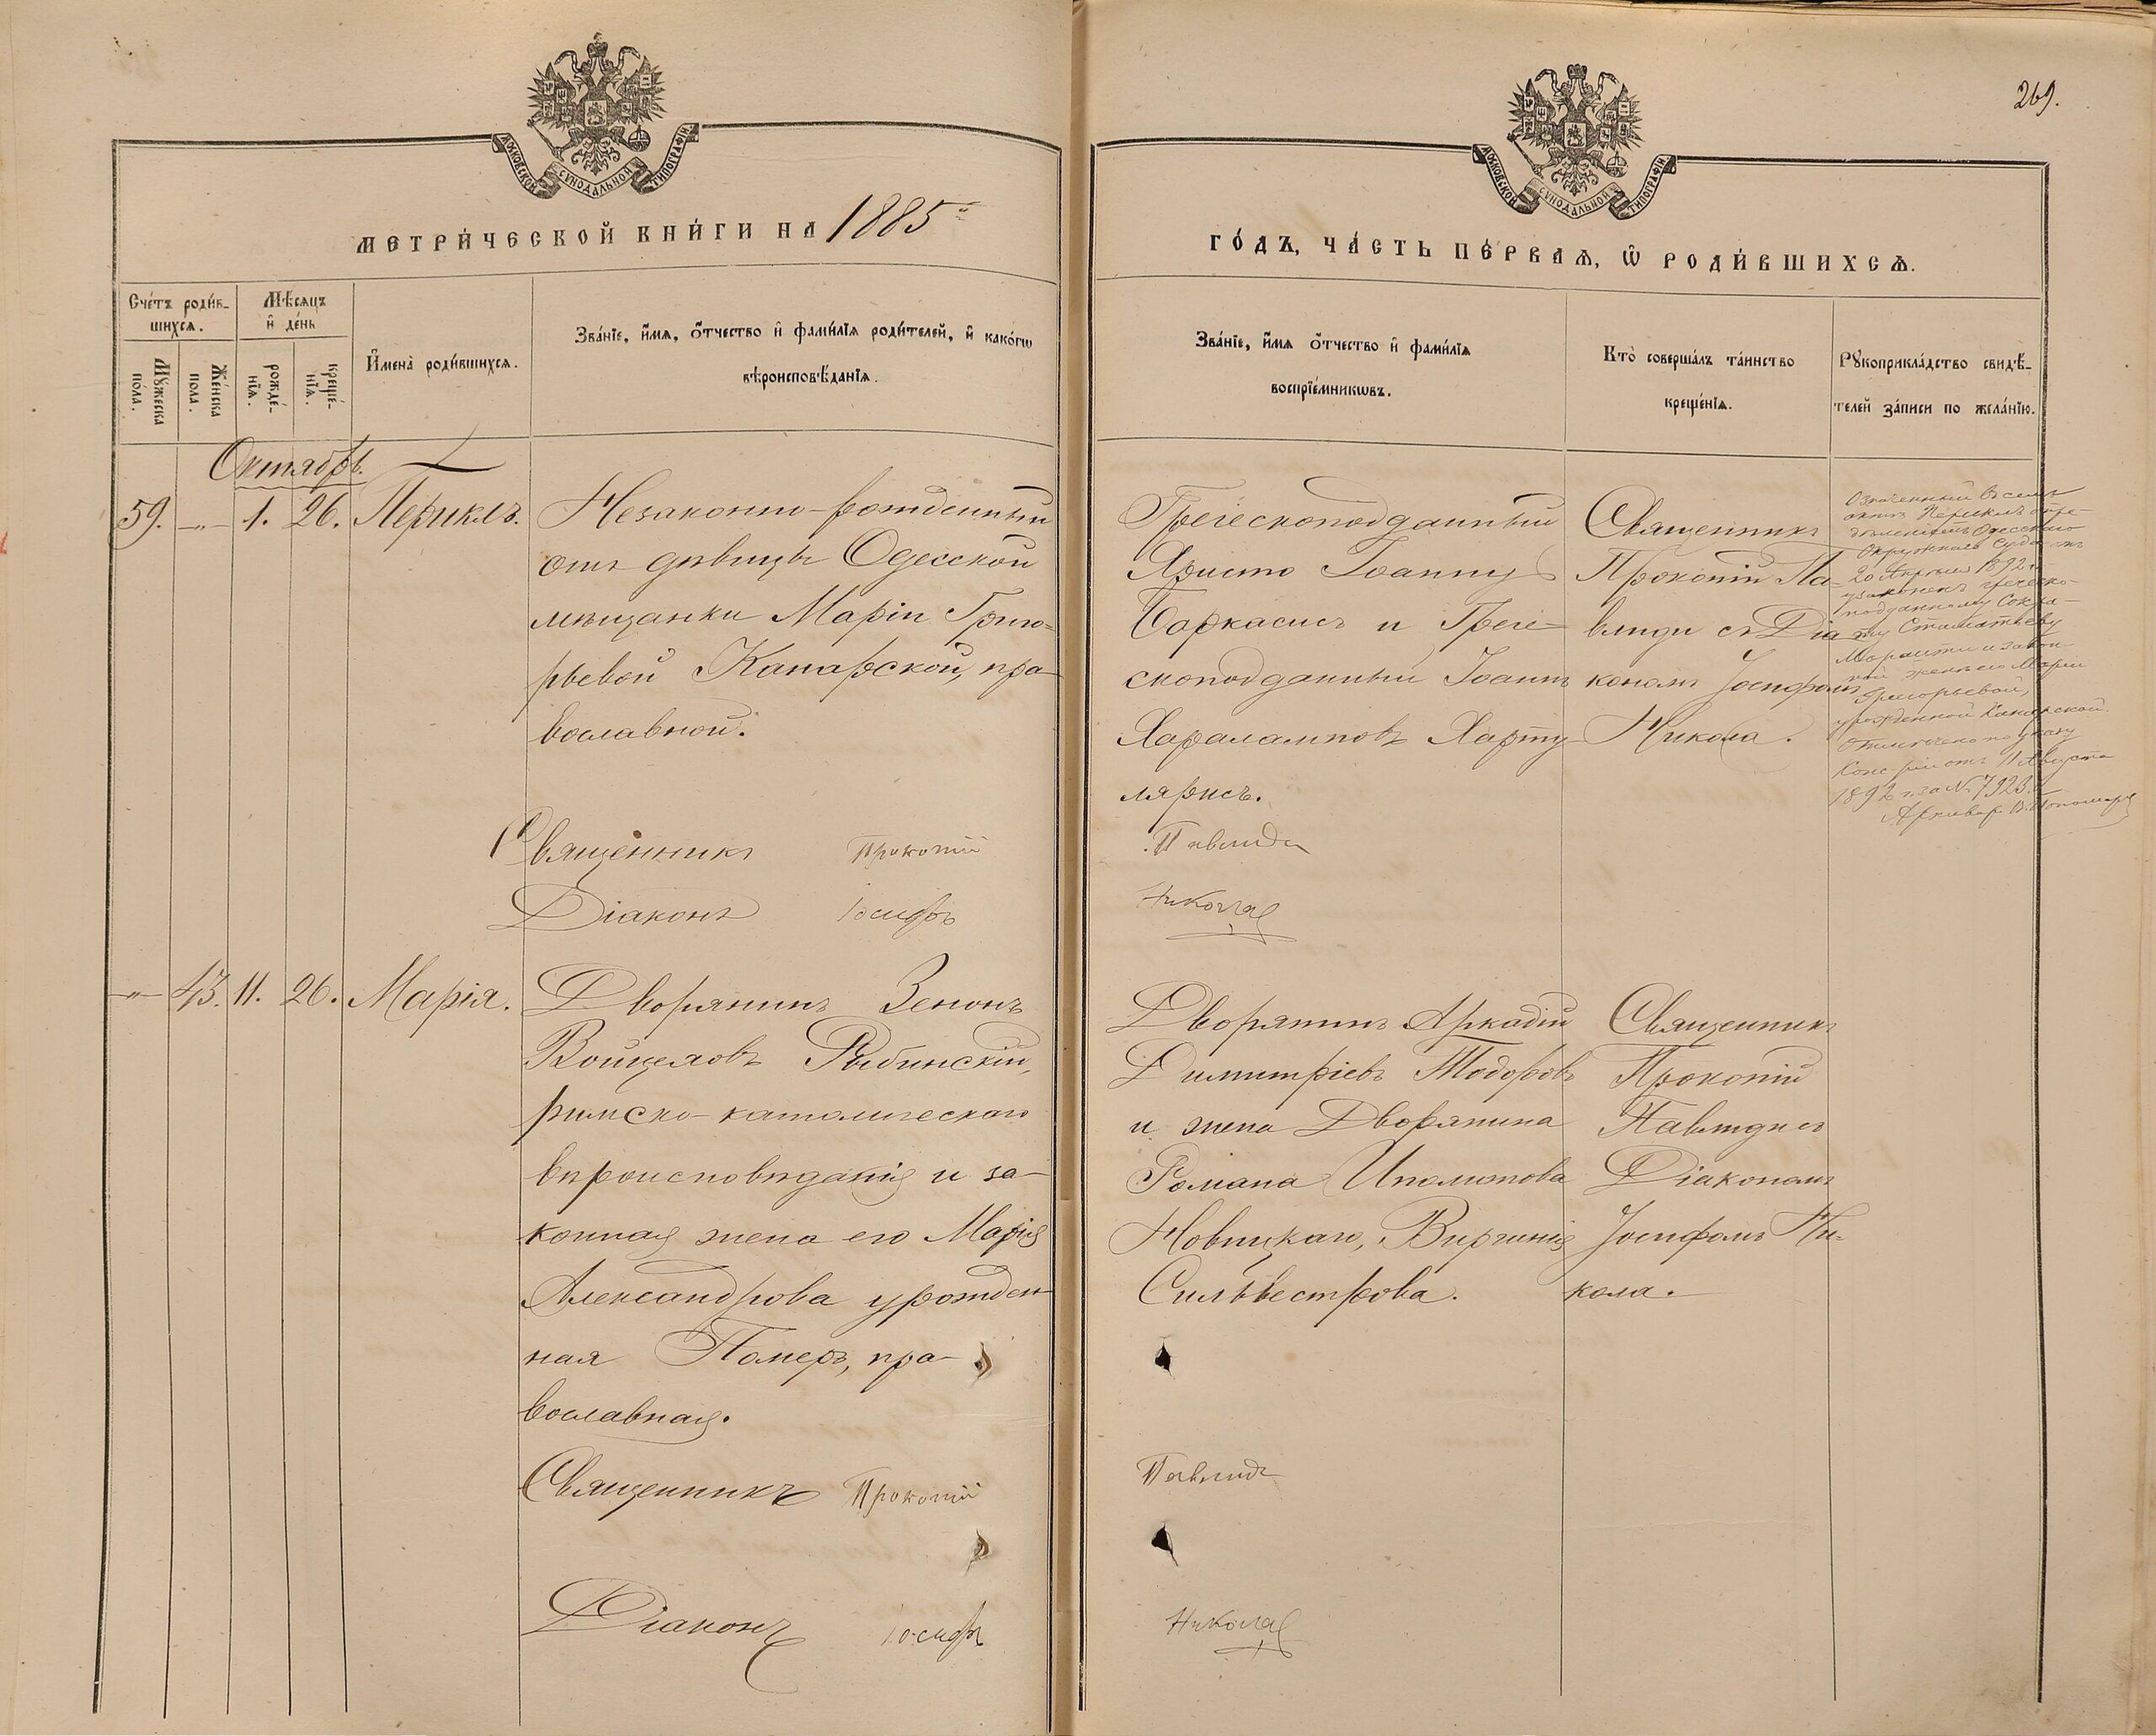 МОСКОВСКОЙ СУНОДАЛЬНОЙ ТИПОГРАФІИ
МЕТРИ́ЧЕСКОЙ КНИ́ГИ НА 1885
Сче́тъ роди́в-
шихсѧ.
Мѣ́сѧцъ
и҆ де́нь
Мꙋ́жеска по́ла.
Же́нска по́ла.
рожде́-нїѧ.
креще́-нїѧ.
И҆мена̀ роди́вшихсѧ.
Зва́нїе, и҆́мѧ, ѻ҆́тчество и҆ фами́лїѧ роди́телей, и҆ како́гѡ
вѣроисповѣ́данїѧ.
Октябрь.
59. -"- 1. 26. Периклъ.
Незаконно-рожденный
отъ дѣвицы Одесской
мѣщанки Маріи Григо-
рьевой Канарской, пра-
вославной.
Священникъ Прокопій
Діаконъ Іосифъ
-"- 43. 11. 26. Марія.
Дворянинъ Зенонъ
Войцеховъ Рыбинскій,
римско-католическаго
вѣроисповѣданія и за-
конная жена его Марія
Александрова урожден-
ная Померъ, пра-
вославная.
Священникъ Прокопій
Діаконъ Іосифъ
269.
МОСКОВСКОЙ СУНОДАЛЬНОЙ ТИПОГРАФІИ
ГО́ДЪ, ЧА́СТЬ ПЕ́РВАѦ, Ѡ҆ РОДИ́ВШИХСѦ.
Зва́нїе, и҆́мѧ ѻ҆́тчество и҆ фами́лїѧ
воспрїе́мникѡвъ.
Кто̀ соверша́лъ та́инство
креще́нїѧ.
Рꙋкоприкла́дство свидѣ́-
телей за́писи по жела́нїю.
Греческоподданный
Христо Іоанну
Баркасисъ и Грече-
скоподданный Іоаннъ
Хараламповъ Харту-
лярисъ.
Павлиди
Никола
Священникъ
Прокопій Па-
влиди съ Діа-
кономъ Іосифомъ
Никола.
Означенный въ семъ
актѣ Периклъ опре-
дѣленіемъ Одесскаго
Окружнаго Суда отъ
20 Апрѣля 1892 г.
узаконенъ греческо-
подданному Сокра-
ту Стаматьеву
Мораити и закон-
ной женѣ его Маріи
Григорьевой,
урожденной Канарской.
Отмѣчено по указу
Конс-ріи отъ 11 Августа
1892 г. за № 7923.
Архивар. В.
Дворянинъ Аркадій
Димитріевъ Тодоровъ
и жена Дворянина
Романа Иполитова
Новицкаго, Виргинія
Сильвестрова.
Павлиди
Никола
Священникъ
Прокопій
Павлиди съ
Діакономъ
Іосифомъ Ни-
кола.